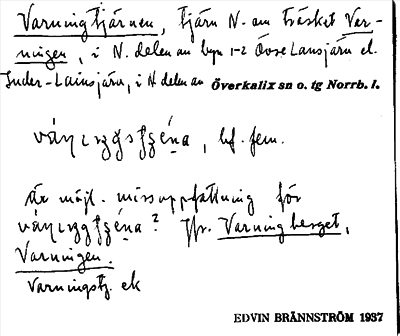 Varningtjärnen, tjärn N. om träsket Var-
ningen, i N. delen av byn 1-2 Övre Lansjärv el.
Inder-Lainsjärv, i N delen av Överkalix sn o. tg Norrb. l.
, bf. fem.
är möjl. missuppfattning för
? Jfr. Varningberget,
Varningen.
Varningstj. ek
EDVIN BRÄNNSTRÖM 1937